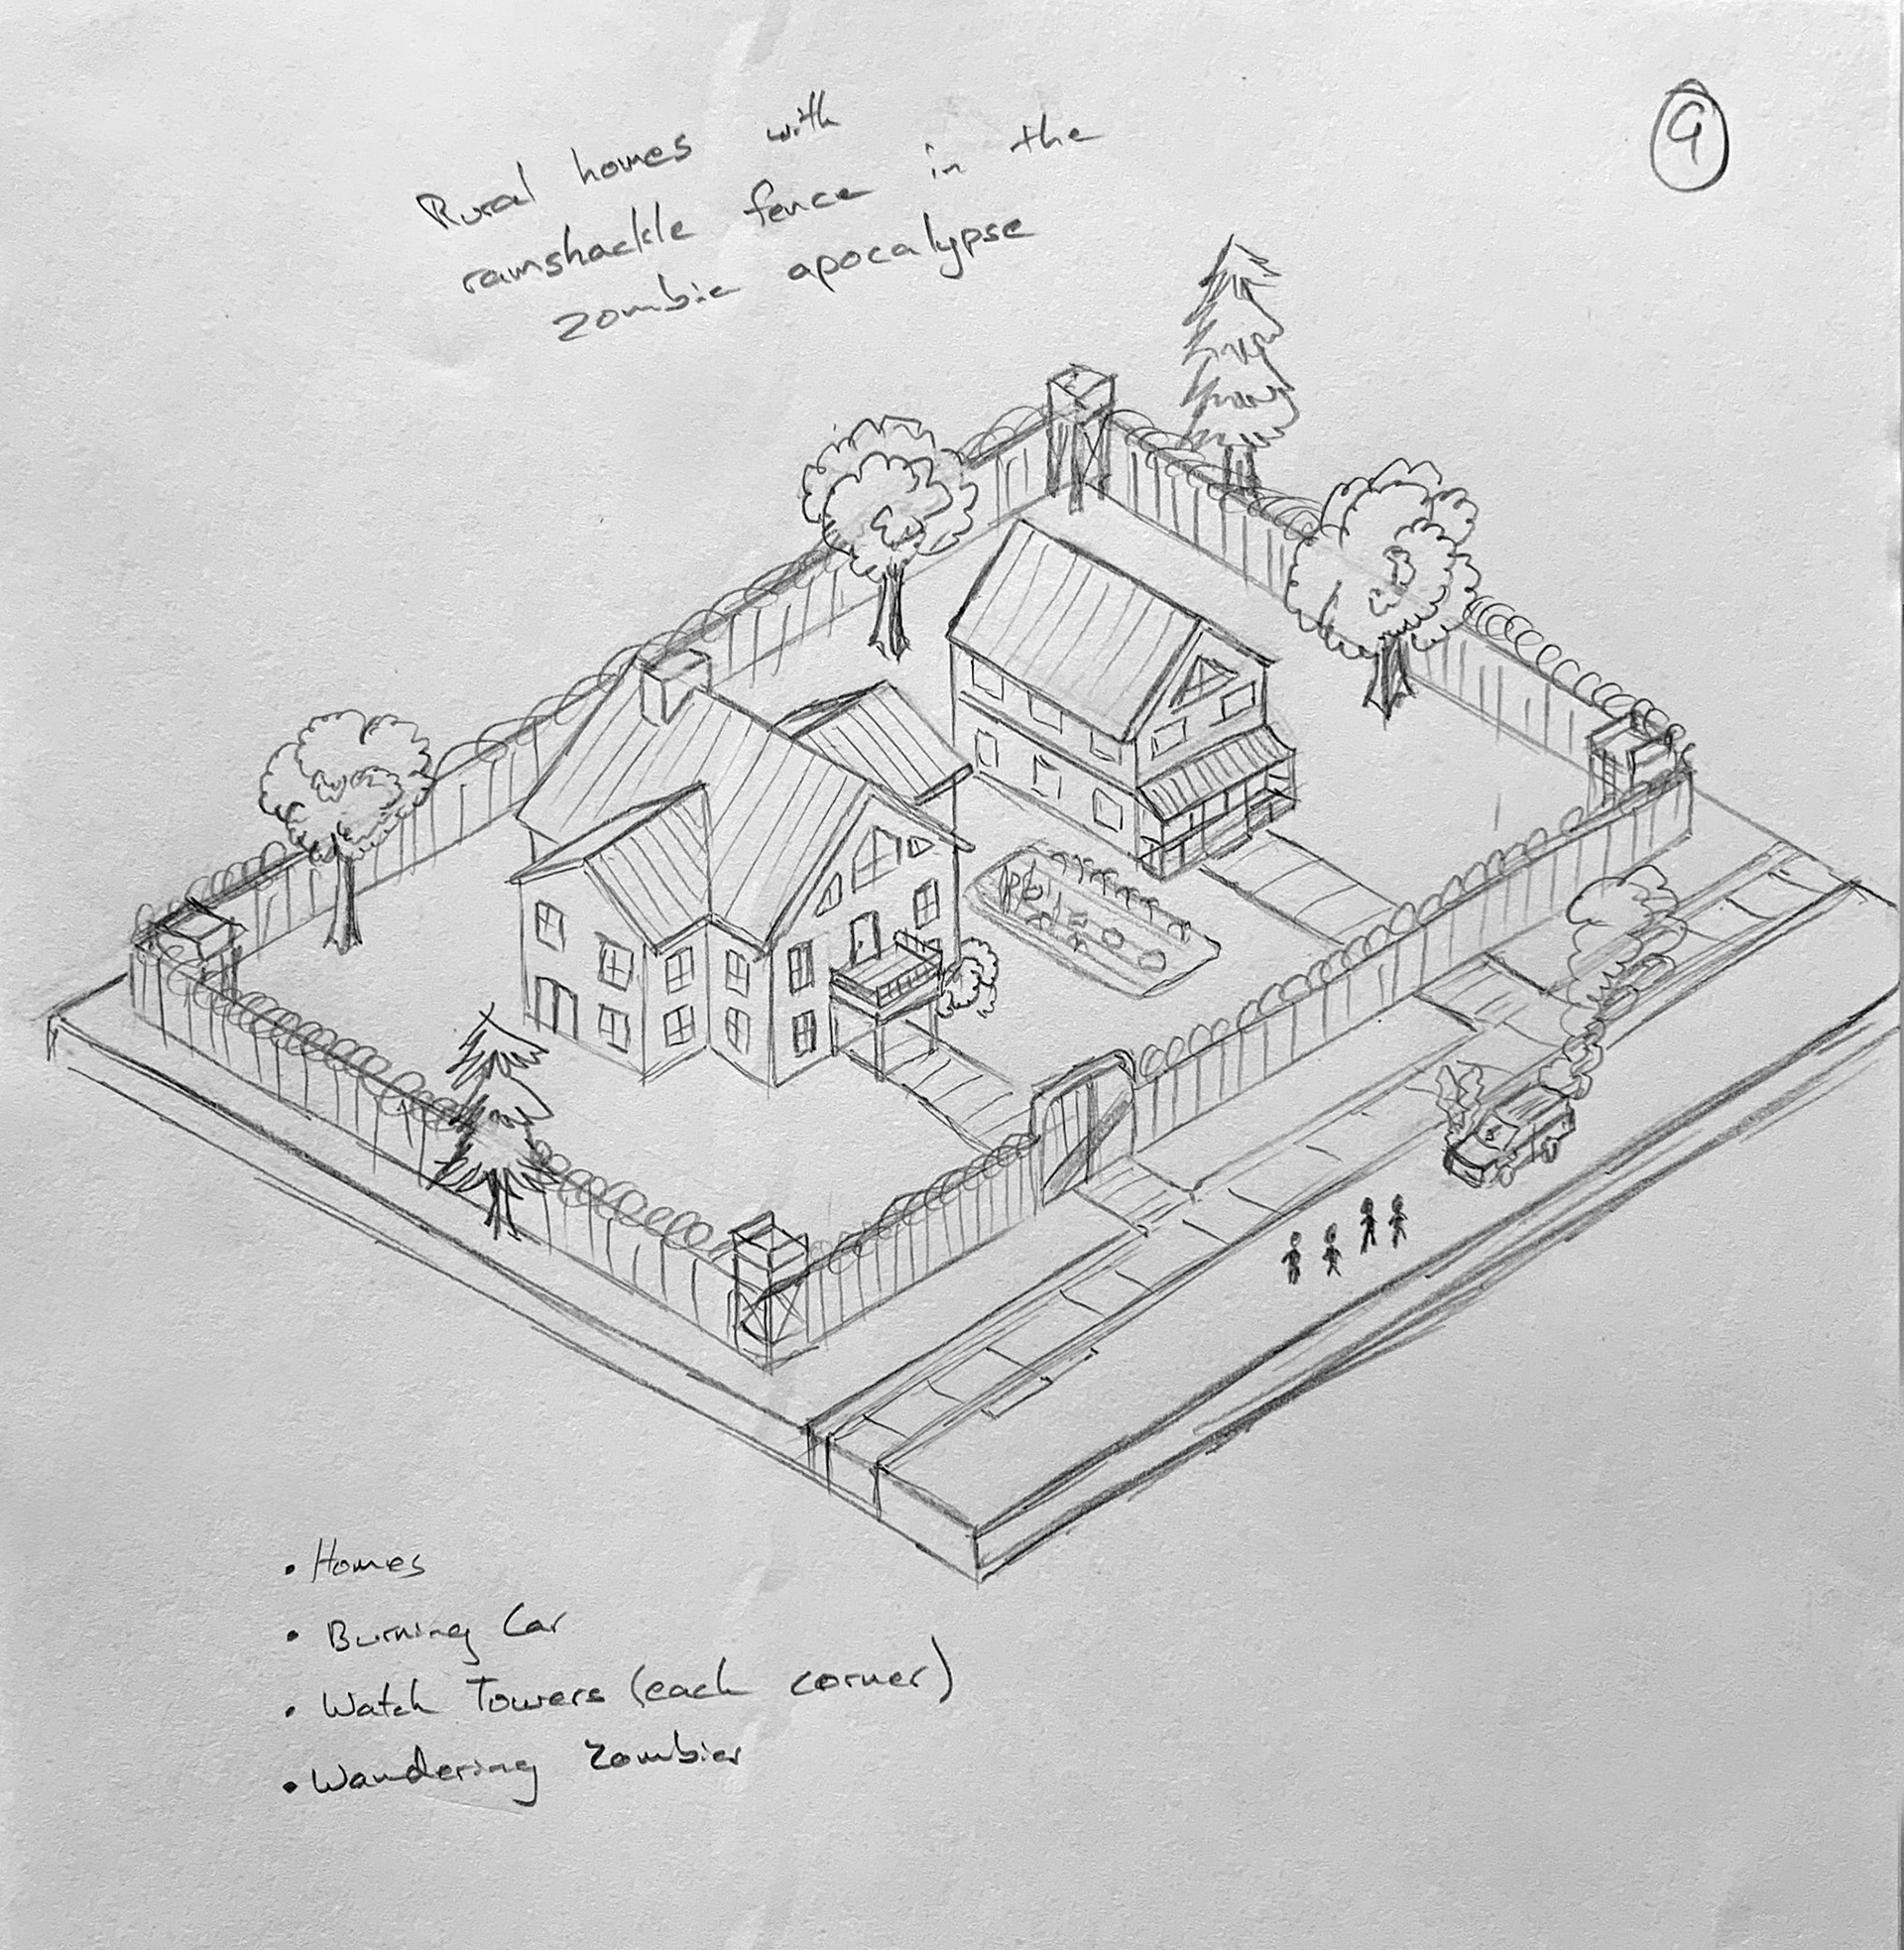 Rural homes with
ramshackle fence in the
zombie apocalypse
9
• Homes
• Burning Car
• Watch Towers (each corner)
• Wandering Zombies